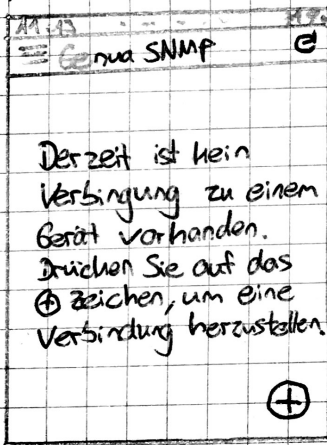 11:13
Genua SNMP
Derzeit ist kein
Verbingung zu einem
Gerät vorhanden.
Drücken Sie auf das
⊕ zeichen, um eine
Verbindung herzustellen.